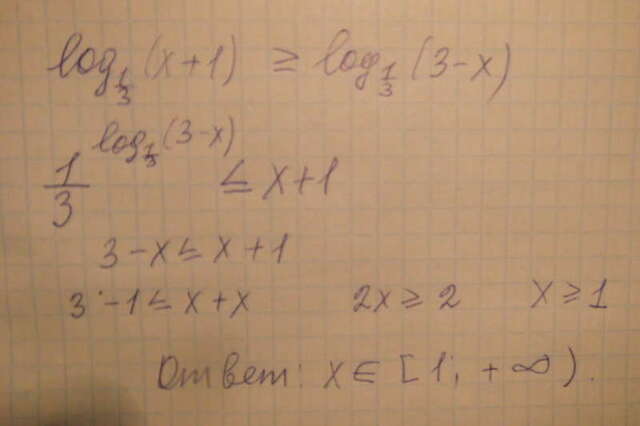 log_{1/3}(x+1) ≥ log_{1/3}(3-x)
1/3^{log_{1/3}(3-x)} ≤ x+1
3-x ≤ x+1
3-1 ≤ x+x 2x ≥ 2 x ≥ 1
Ответ: x ∈ [1; +∞).